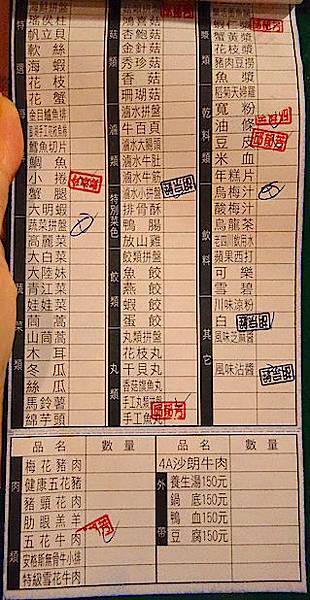 特選
海鮮拼盤
瑤伏柱
帆立貝
軟絲
海蝦
花枝
花蟹
金目鱸魚排
鱈魚切片
鯛魚
小捲
蟹腿
大明蝦
蔬菜類
蔬菜拼盤
高麗菜
大白菜
大陸妹
青江菜
娃娃菜
茼蒿
山茼蒿
木耳
冬瓜
絲瓜
馬鈴薯
綿芋頭
菇類
鴻喜菇
杏鮑菇
金針菇
秀珍菇
香菇
珊瑚菇
滷類
滷水拼盤
牛百頁
滷水大腸頭
滷水牛肚
滷水牛筋
滷水小拼盤
特別菜色
排骨酥
鴨腸
放山雞
餃類
餃類拼盤
魚餃
燕餃
蝦餃
蛋餃
丸類
丸類拼盤
花枝丸
干貝丸
香菇摃魚丸
手工丸類拼盤
手工魚丸
漿類
蝦仁漿
蟹黃漿
花枝漿
豬肉豆撈
魚漿
乾料類
稻菊天婦羅
寬粉
油條
豆皮
米血
年糕片
飲料
烏梅汁
酸梅汁
烏龍茶
老四川飲用水
蘋果西打
可樂
雪碧
其它
川味涼粉
白
風味芝麻醬
風味沾醬
品名 數量 品名 數量
肉類
梅花豬肉
健康五花豬
豬頸花肉
肋眼羔羊
五花牛肉
安格斯無骨牛小排
特級雪花牛肉
4A沙朗牛肉
外帶
養生湯150元
鍋底150元
鴨血150元
豆腐150元